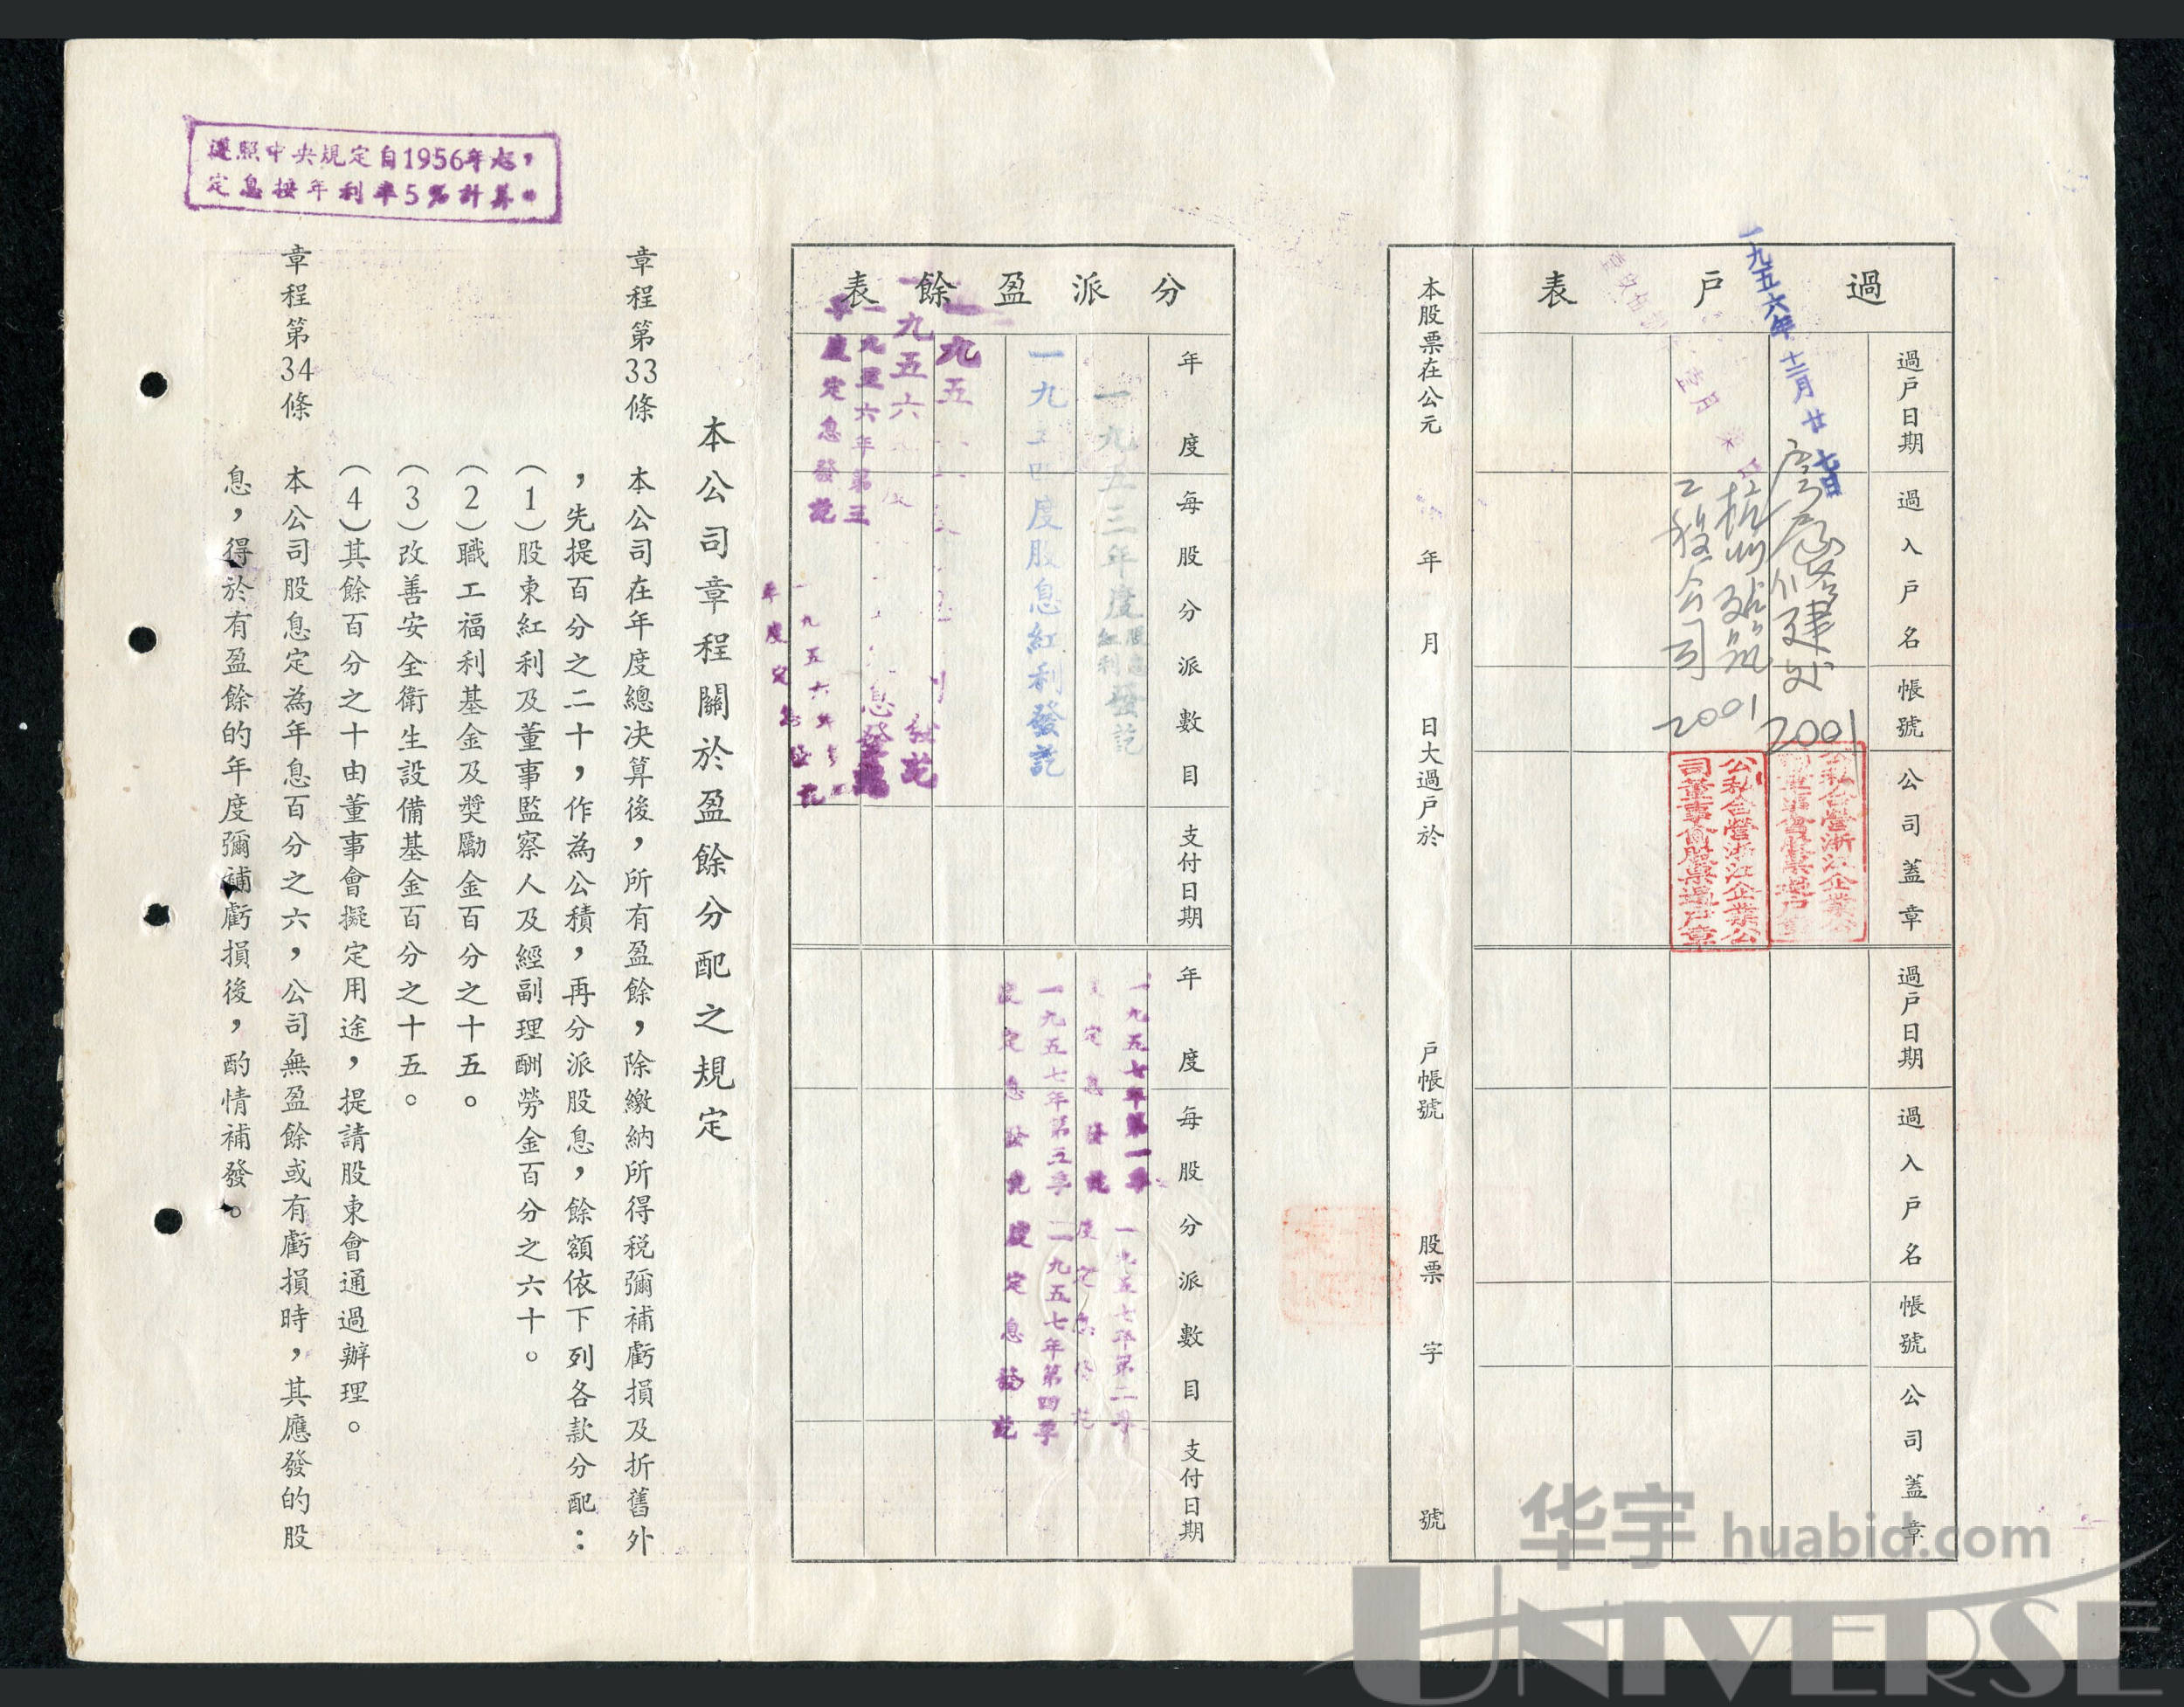 過戶表
過戶日期
過入戶名
帳號
公司蓋章
過戶日期
過入戶名
帳號
公司蓋章
一九五六年十二月廿七日
2001
公私合營浙江企業公
司董事會股票過戶章
2001
公私合營浙江企業公
司董事會股票過戶章
本股票在公元 年 月 日大過戶於 戶帳號 股票 字 號
分派盈餘表
年度
每股分派數目
支付日期
年度
每股分派數目
支付日期
一九五三年度股息紅利發訖
度股息紅利發訖
一九五六年第三
季度定息發訖
一九五七年第一季
度定息發訖
一九五七年第二季
度定息發訖
一九五七年第三季
度定息發訖
一九五七年第四季
度定息發訖
本公司章程關於盈餘分配之規定
章程第33條 本公司在年度總決算後，所有盈餘，除繳納所得稅彌補虧損及折舊外
，先提百分之二十，作為公積，再分派股息，餘額依下列各款分配：
（1）股東紅利及董事監察人及經副理酬勞金百分之六十。
（2）職工福利基金及獎勵金百分之十五。
（3）改善安全衛生設備基金百分之十五。
（4）其餘百分之十由董事會擬定用途，提請股東會通過辦理。
章程第34條 本公司股息定為年息百分之六，公司無盈餘或有虧損時，其應發的股
息，得於有盈餘的年度彌補虧損後，酌情補發。
遵照中央規定自1956年起，
定息按年利率5%計算。
华宇 huabid.com
UNIVERSE